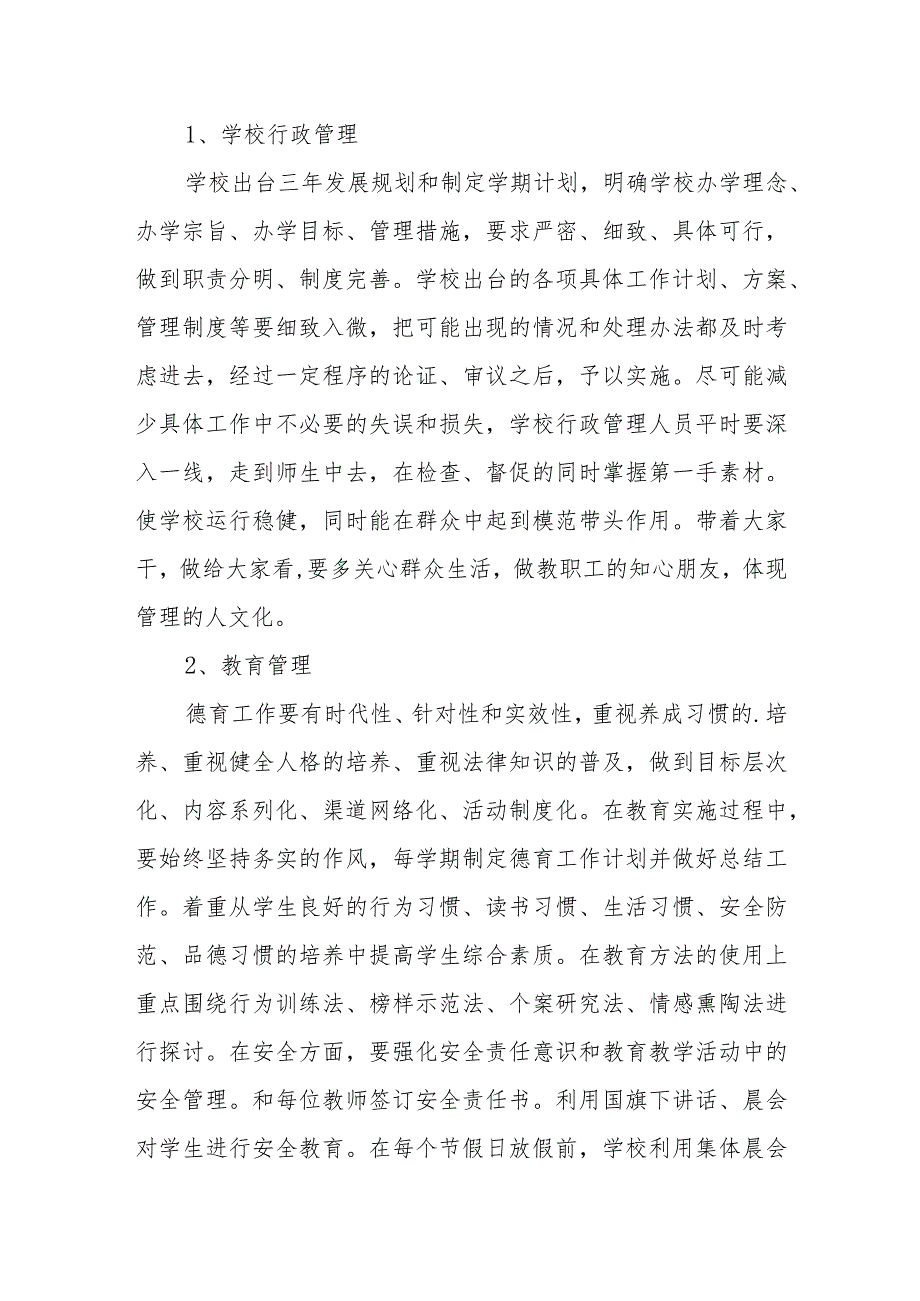 1、学校行政管理
学校出台三年发展规划和制定学期计划，明确学校办学理念、
办学宗旨、办学目标、管理措施，要求严密、细致、具体可行，
做到职责分明、制度完善。学校出台的各项具体工作计划、方案、
管理制度等要细致入微，把可能出现的情况和处理办法都及时考
虑进去，经过一定程序的论证、审议之后，予以实施。尽可能减
少具体工作中不必要的失误和损失，学校行政管理人员平时要深
入一线，走到师生中去，在检查、督促的同时掌握第一手素材。
使学校运行稳健，同时能在群众中起到模范带头作用。带着大家
干，做给大家看,要多关心群众生活，做教职工的知心朋友，体现
管理的人文化。
2、教育管理
德育工作要有时代性、针对性和实效性，重视养成习惯的.培
养、重视健全人格的培养、重视法律知识的普及，做到目标层次
化、内容系列化、渠道网络化、活动制度化。在教育实施过程中，
要始终坚持务实的作风，每学期制定德育工作计划并做好总结工
作。着重从学生良好的行为习惯、读书习惯、生活习惯、安全防
范、品德习惯的培养中提高学生综合素质。在教育方法的使用上
重点围绕行为训练法、榜样示范法、个案研究法、情感熏陶法进
行探讨。在安全方面，要强化安全责任意识和教育教学活动中的
安全管理。和每位教师签订安全责任书。利用国旗下讲话、晨会
对学生进行安全教育。在每个节假日放假前，学校利用集体晨会